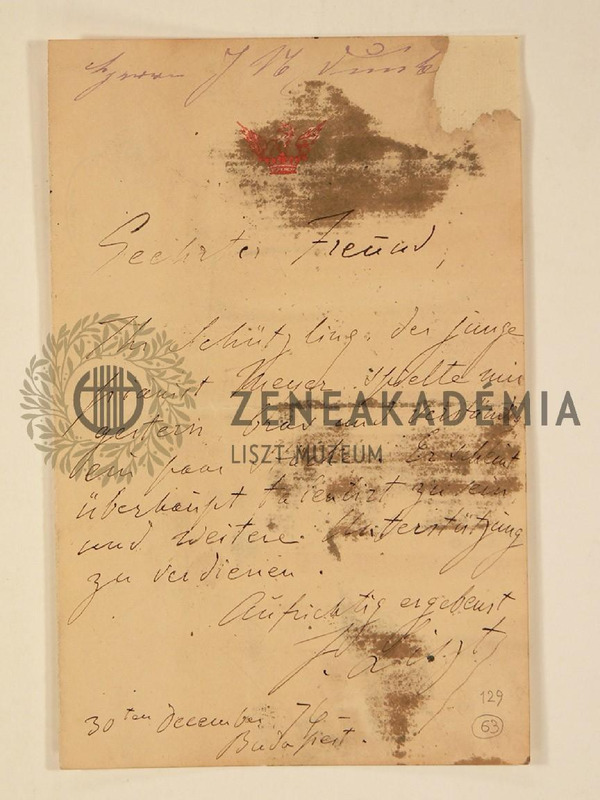 Herrn J N Dunkl
Geehrter Freund,
Ihr Schützling, der junge
Pianist Meyer spielte mir
gestern brav und
ein paar
überhaupt talentirt zu sein
und weitere Unterstützung
zu verdienen.
Aufrichtig ergebenst
F. Liszt
30ten december 76
Budapest.
129
63
ZENEAKADEMIA
LISZT MÚZEUM